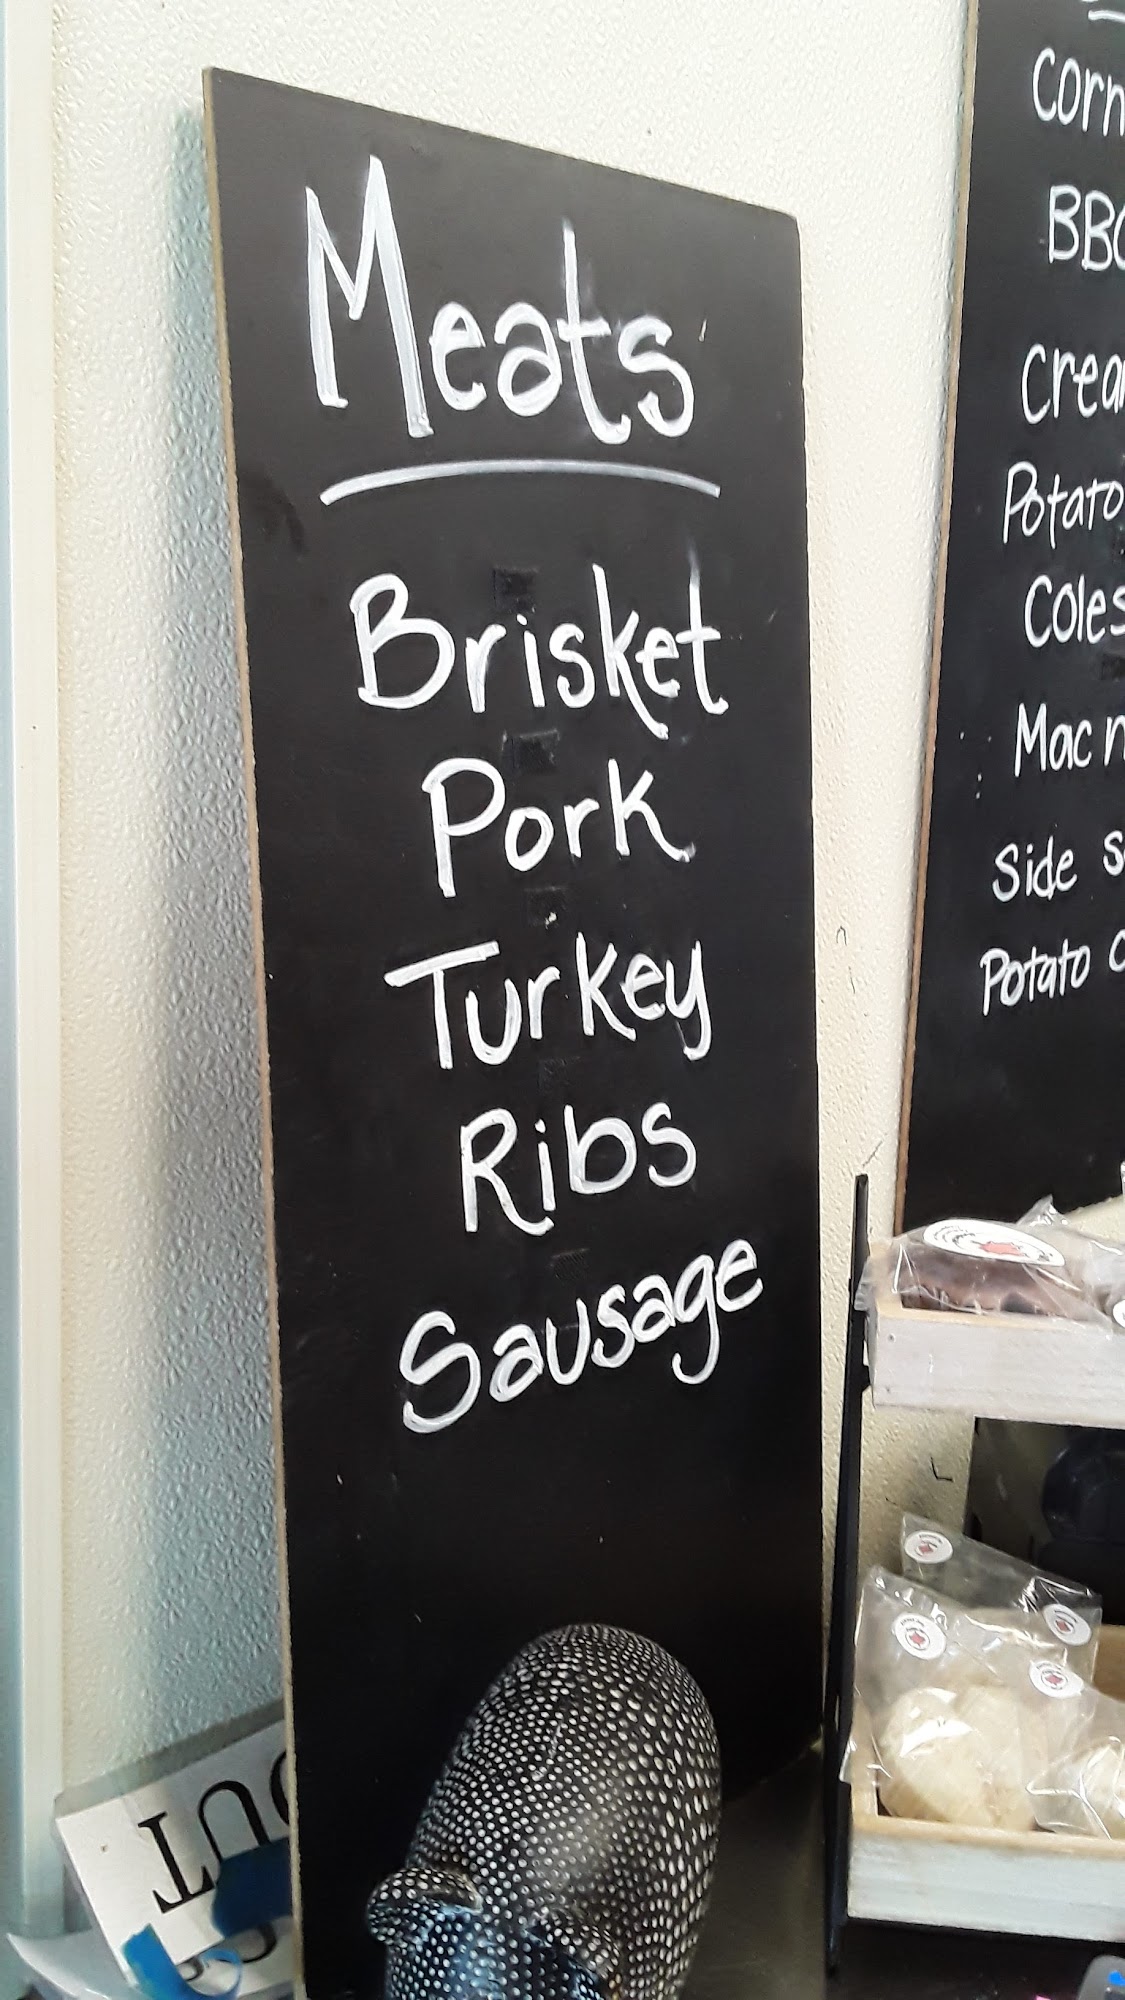 Meats
Brisket
Pork
Turkey
Ribs
Sausage
Corn
BBQ
Potato
Mac n
Side
Potato
OUT